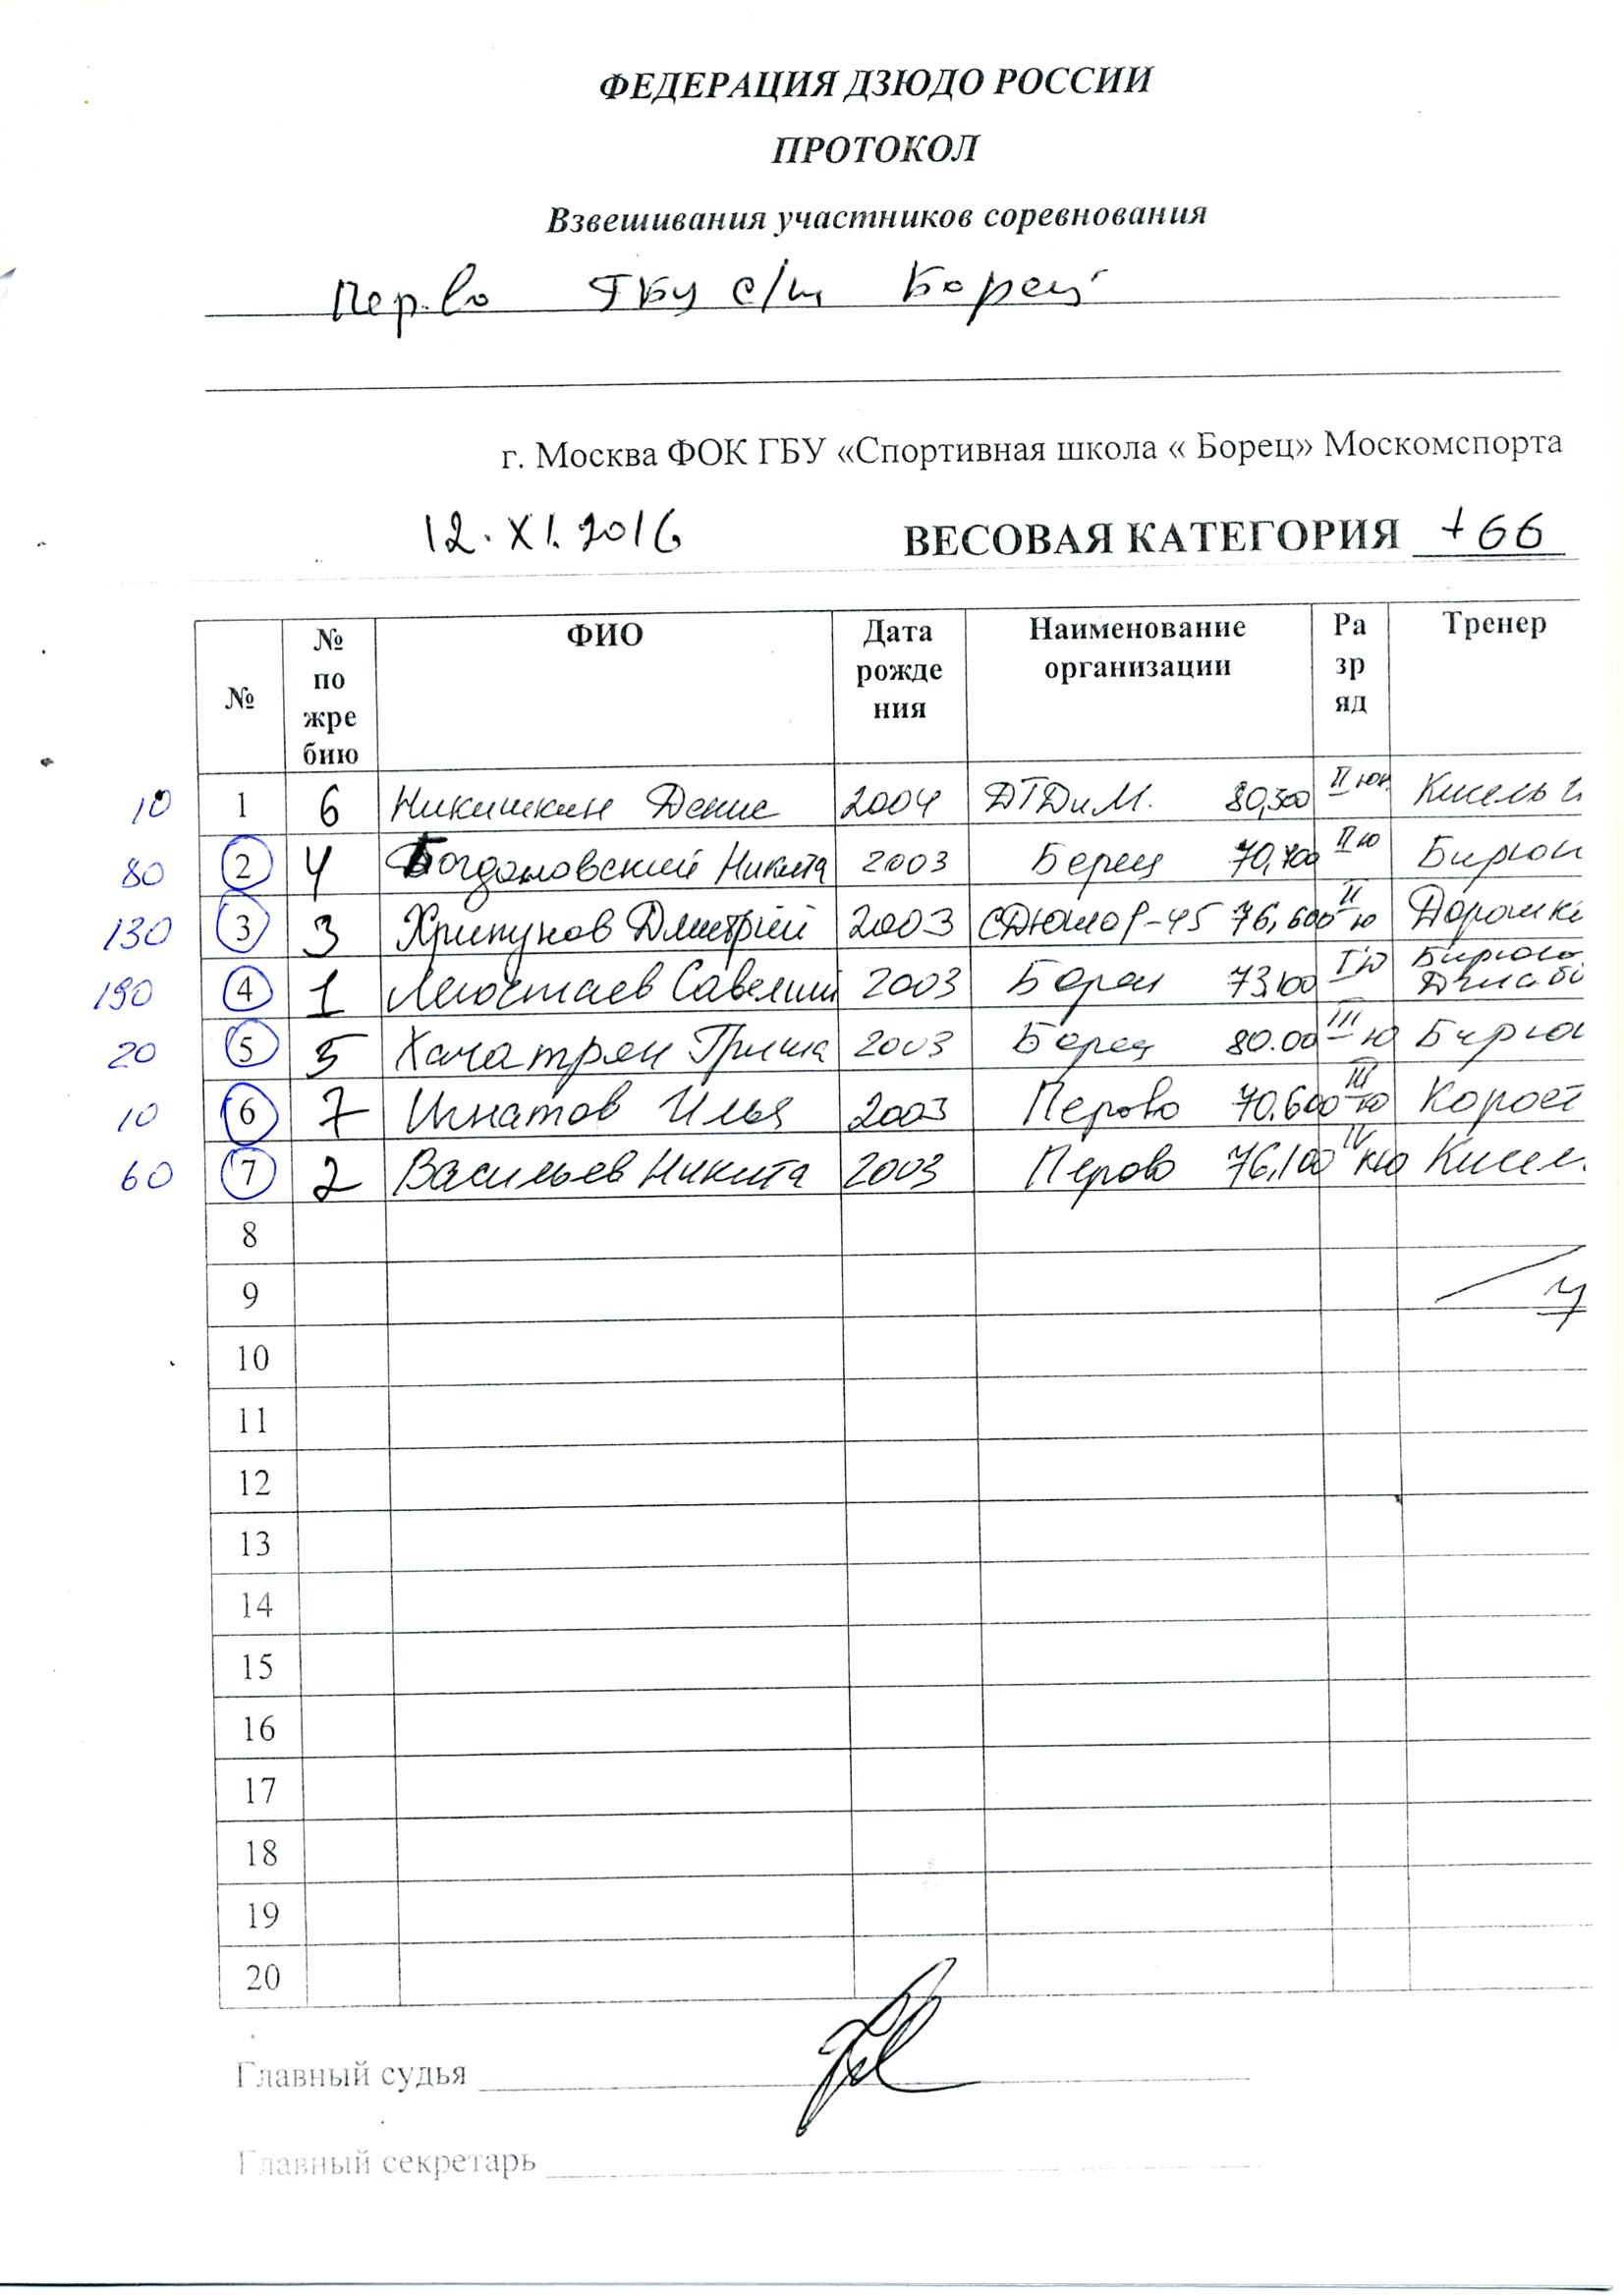 ФЕДЕРАЦИЯ ДЗЮДО РОССИИ
ПРОТОКОЛ
Взвешивания участников соревнования
Пер-во ГБУ с/ш Борец
г. Москва ФОК ГБУ «Спортивная школа « Борец» Москомспорта
12.XI.2016 ВЕСОВАЯ КАТЕГОРИЯ +66
№ № по жре бию ФИО Дата рожде ния Наименование организации Ра зр яд Тренер
10 1 6 Никишкин Денис 2004 ДТДиМ. 80,300 II юн. Кисель
80 2 4 Богдановский Никита 2003 Борец 70,700 II ю Бирюк
130 3 3 Хрипунов Дмитрий 2003 СДЮШОР-45 76,600 II ю Дорошк
190 4 1 Савелий 2003 Борец 73,100 I ю Бирюко
20 5 5 Хачатрян Гриша 2003 Борец 80.00 III ю Бирюк
10 6 7 Игнатов Илья 2003 Перово 70.600 III ю Корост
60 7 2 Васильев Никита 2003 Перово 76,100 IV Кисел
8
9
10
11
12
13
14
15
16
17
18
19
20
Главный судья
Главный секретарь